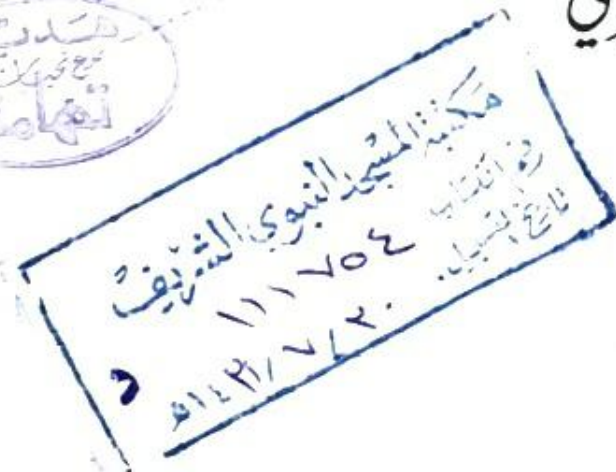 هديـة
تهامة
مكتبة المسجد النبوي الشريف
رقم الكتاب ١١١٧٥٤
تاريخ التسجيل ٢٠/٧/١٤٣١هـ